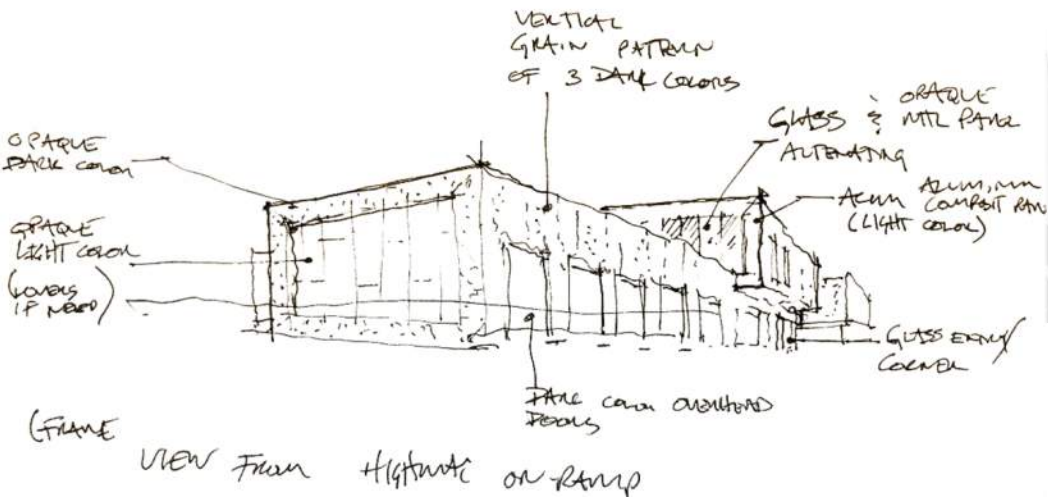 VERTICAL
GRAIN PATTERN
OF 3 DARK COLORS
OPAQUE
DARK COLOR
OPAQUE
LIGHT COLOR
(LOUVERS
IF NEED)
GLASS & OPAQUE
MTL PANEL
ALTERNATING
ACUM ALUMINUM
COMPOSIT PAN
(LIGHT COLOR)
GLASS ENTRY/
CORNER
DARK COLOR OVERHEAD
DOORS
(FRAME
VIEW FROM HIGHWAY ON-RAMP